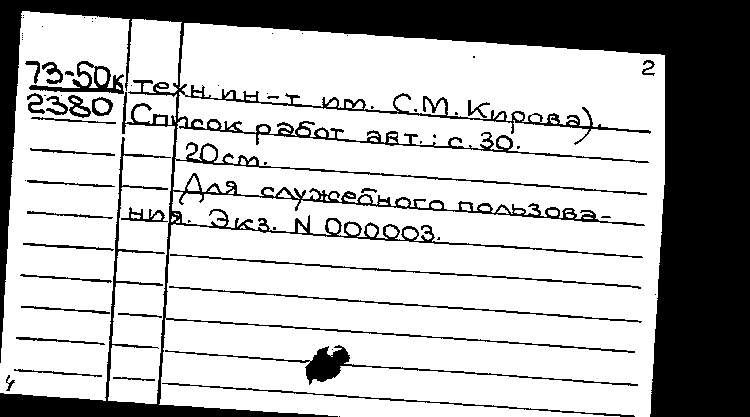 2
73-50к техн. ин-т им. С.М.Кирова).
2380 Список работ авт.: с. 30.
20 см.
Для служебного пользова-
ния. Экз. N 000003.
4